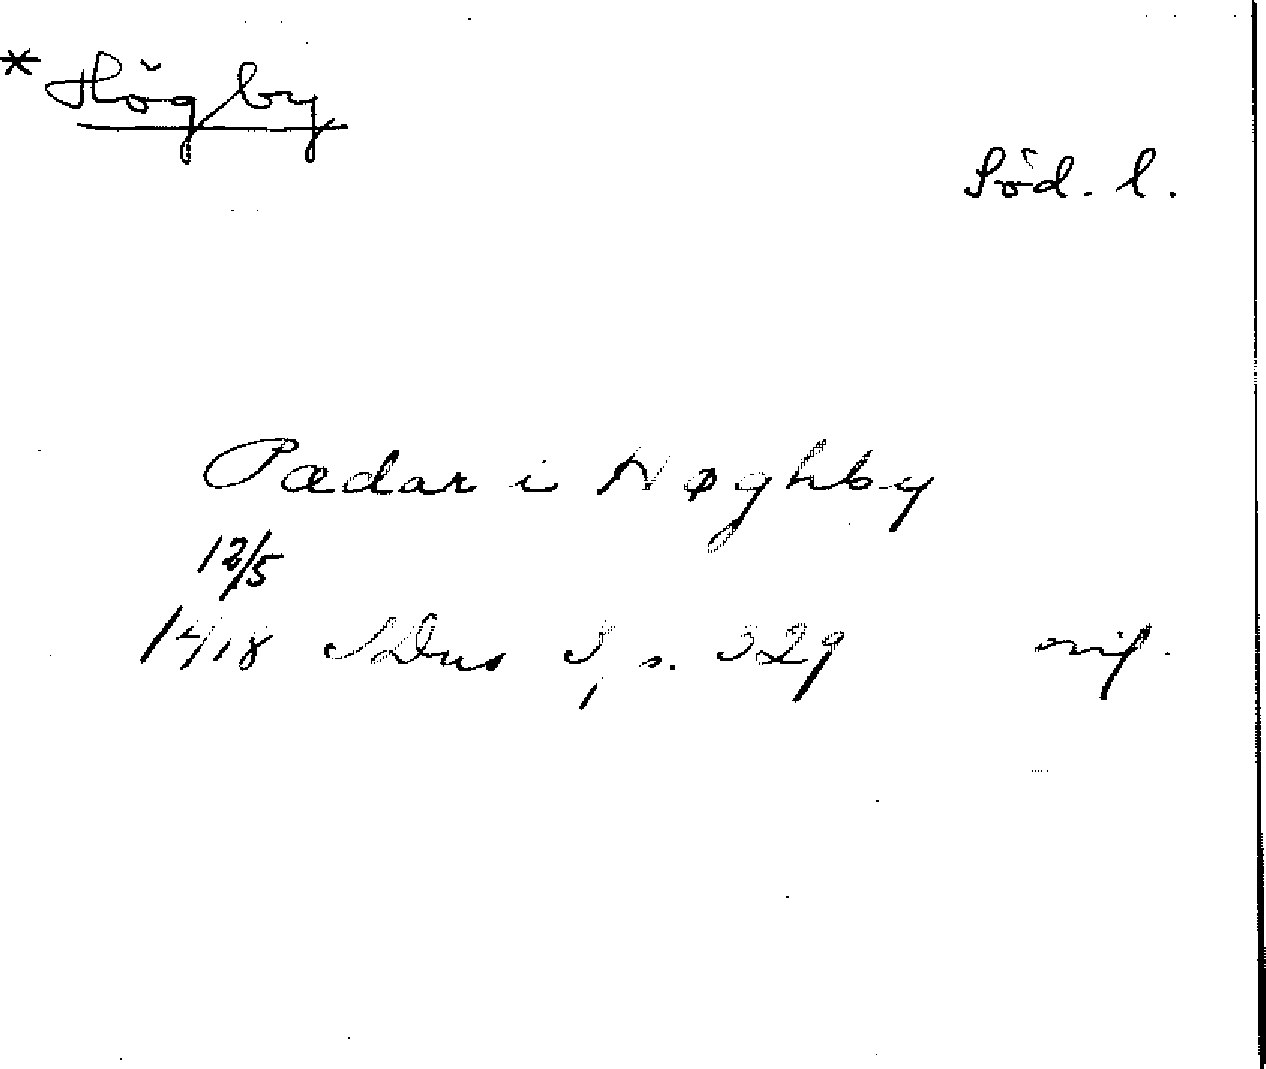 * Högby
Söd. l.
Pædar i Høghby
12/5
1418 SDns I, s. 329 orig.